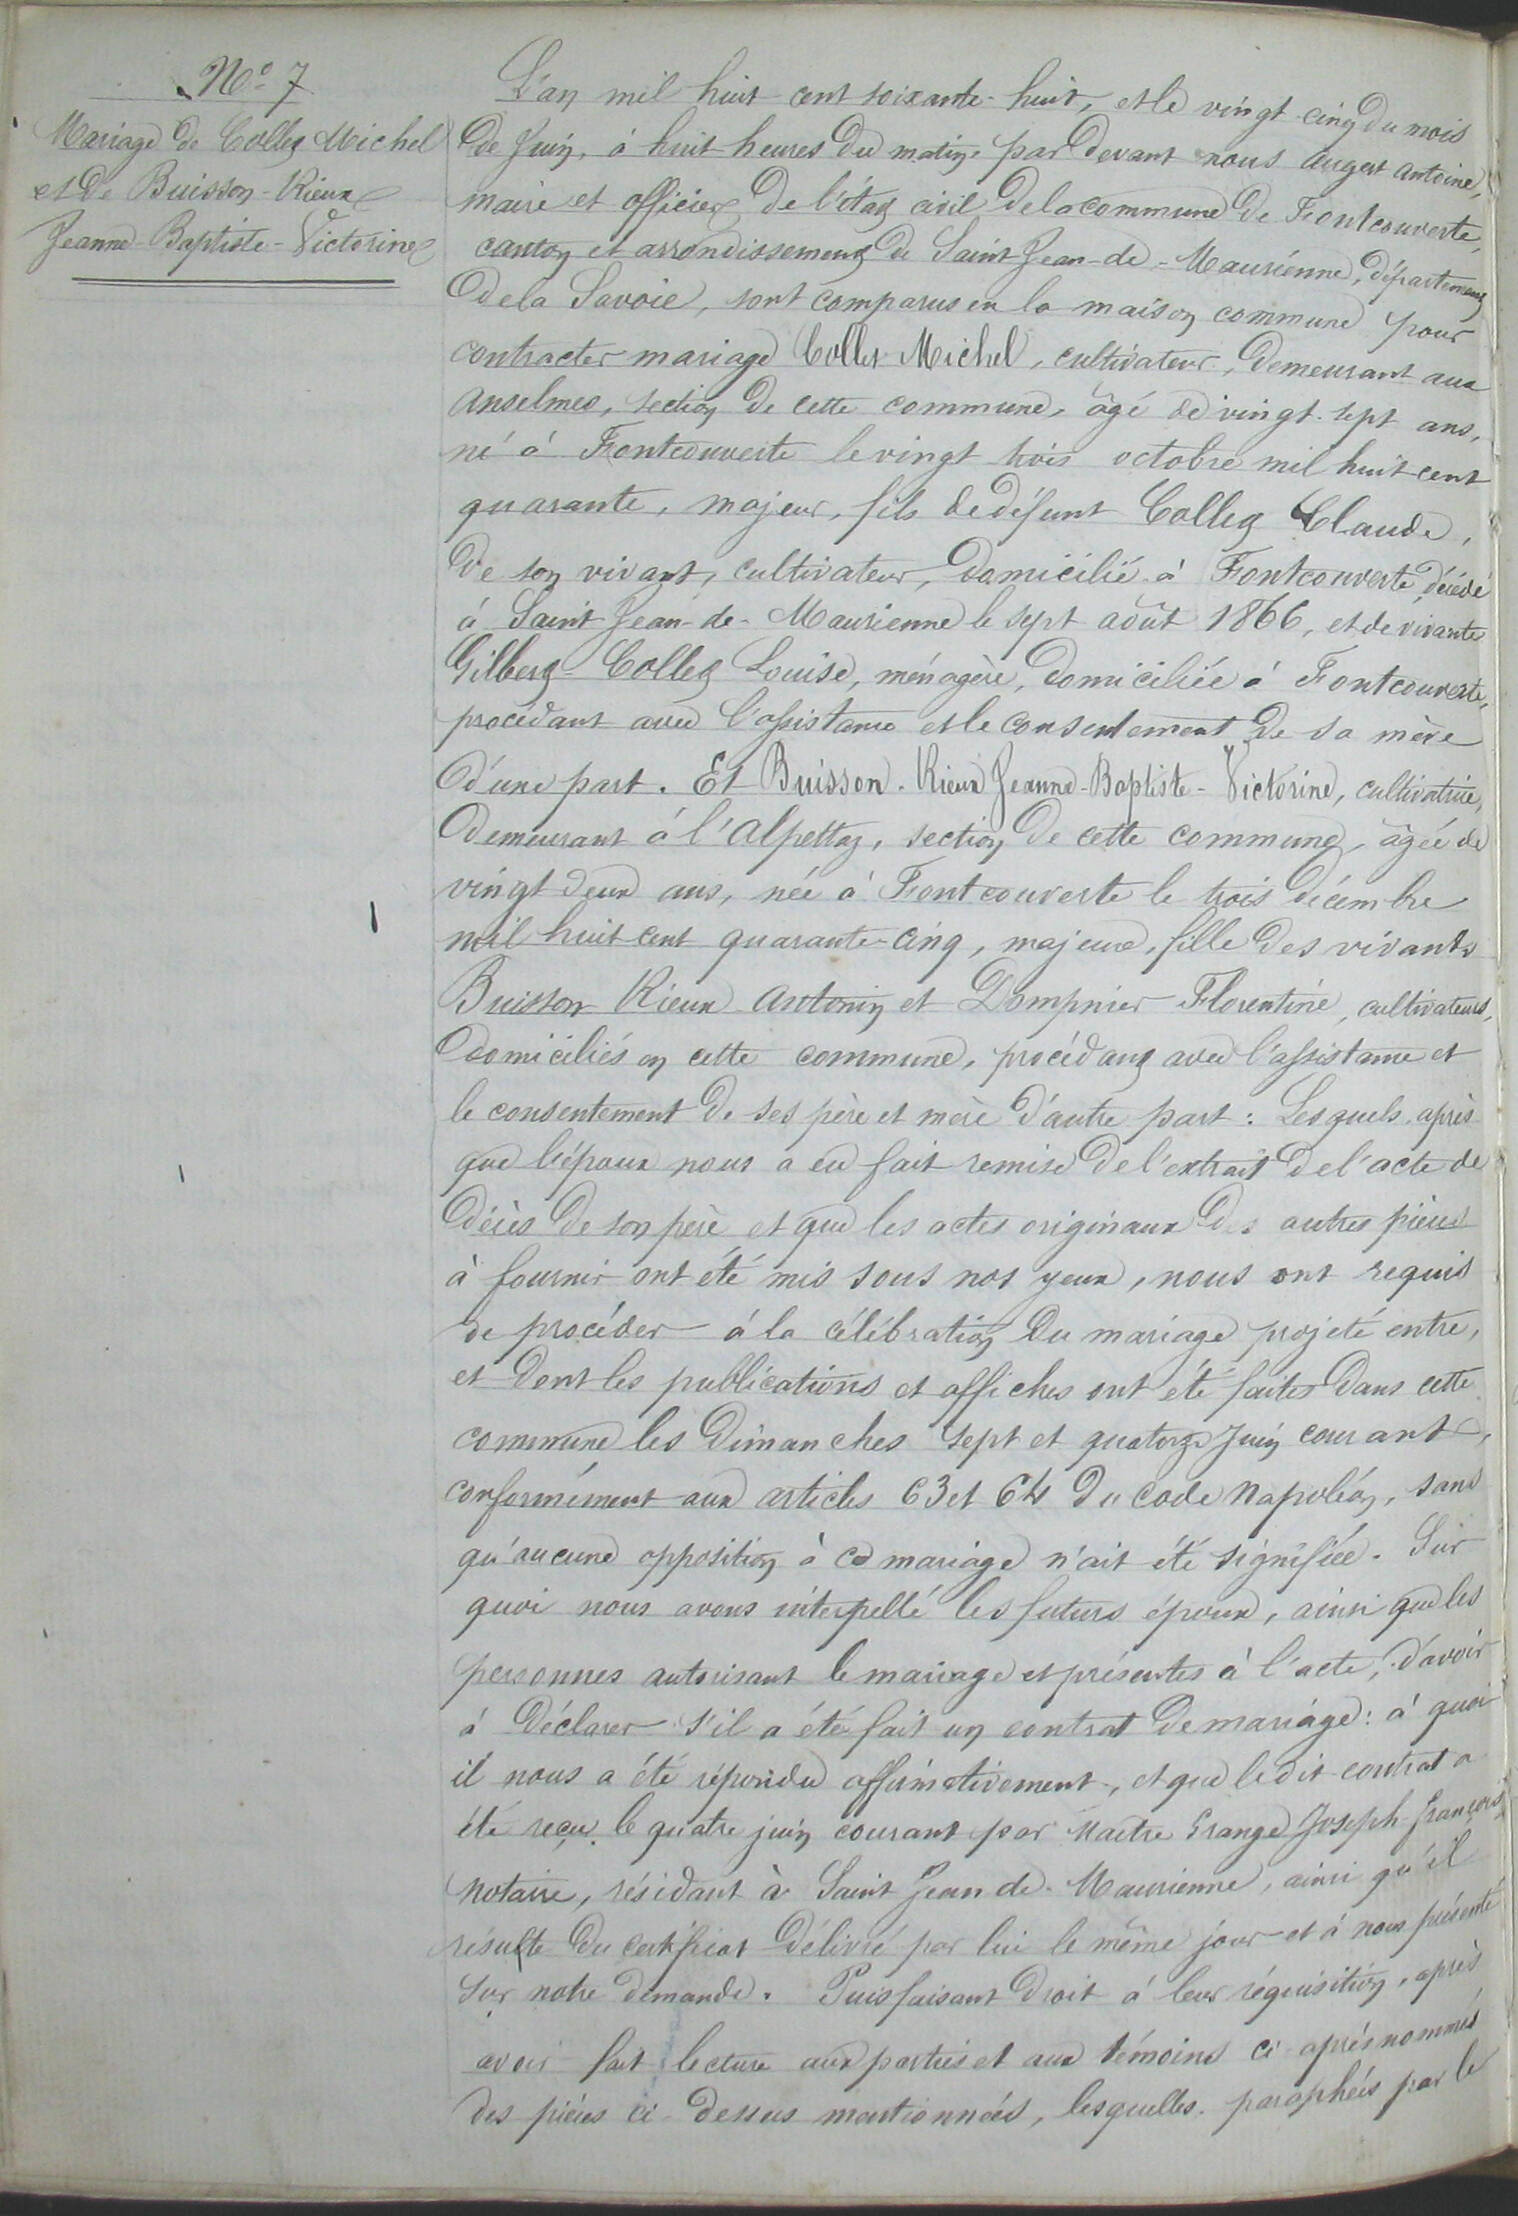 N° 7
Mariage de Collet Michel
et de Buisson-Rieux
Jeanne-Baptiste-Victorine
L'an mil huit cent soixante-huit, et le vingt-cinq du mois
de Juin, à huit heures du matin, par devant nous Augert Antoine,
maire et officier de l'état civil de la commune de Fontcouverte,
canton et arrondissement de Saint Jean-de-Maurienne, département
de la Savoie, sont comparus en la maison commune pour
contracter mariage Collet Michel, cultivateur, demeurant aux
Anselmes, section de cette commune, âgé de vingt-sept ans,
né à Fontcouverte le vingt trois octobre mil huit cent
quarante, majeur, fils de défunt Collet Claude,
de son vivant, cultivateur, domicilié à Fontcouverte, décédé
à Saint Jean-de-Maurienne le sept août 1866, et de vivante
Gilbert-Collet Louise, ménagère, domiciliée à Fontcouverte,
procédant avec l'assistance et le consentement de sa mère
d'une part. Et Buisson-Rieux Jeanne-Baptiste-Victorine, cultivatrice,
demeurant à l'Alpettaz, section de cette commune, âgée de
vingt deux ans, née à Fontcouverte le trois décembre
mil huit cent quarante-cinq, majeure, fille des vivants
Buisson Rieux Antonin et Dompnier Florentine, cultivateurs,
domiciliés en cette commune, procédant avec l'assistance et
le consentement de ses père et mère d'autre part: Lesquels après
que l'époux nous a eu fait remise de l'extrait de l'acte de
décès de son père et que les actes originaux des autres pièces
à fournir ont été mis sous nos yeux, nous ont requis
de procéder à la célébration du mariage projeté entre,
et dont les publications et affiches ont été faites dans cette
commune les dimanches sept et quatorze Juin courant,
conformément aux articles 63 et 64 du Code Napoléon, sans
qu'aucune opposition à ce mariage n'ait été signifiée. Sur
quoi nous avons interpellé les futurs époux, ainsi que les
personnes autorisant le mariage et présentes à l'acte, d'avoir
à déclarer s'il a été fait un contrat de mariage: à quoi
il nous a été répondu affirmativement, et que le dit contrat a
été reçu le quatre juin courant par Maitre Grange Joseph-François
notaire, résidant à Saint Jean de-Maurienne, ainsi qu'il
résulte du certificat délivré par lui le même jour et à nous présenté
sur notre demande. Puis faisant droit à leur réquisition, après
avoir fait lecture aux parties et aux témoins ci-après nommés
des pièces ci-dessus mentionnées, lesquelles paraphées par le